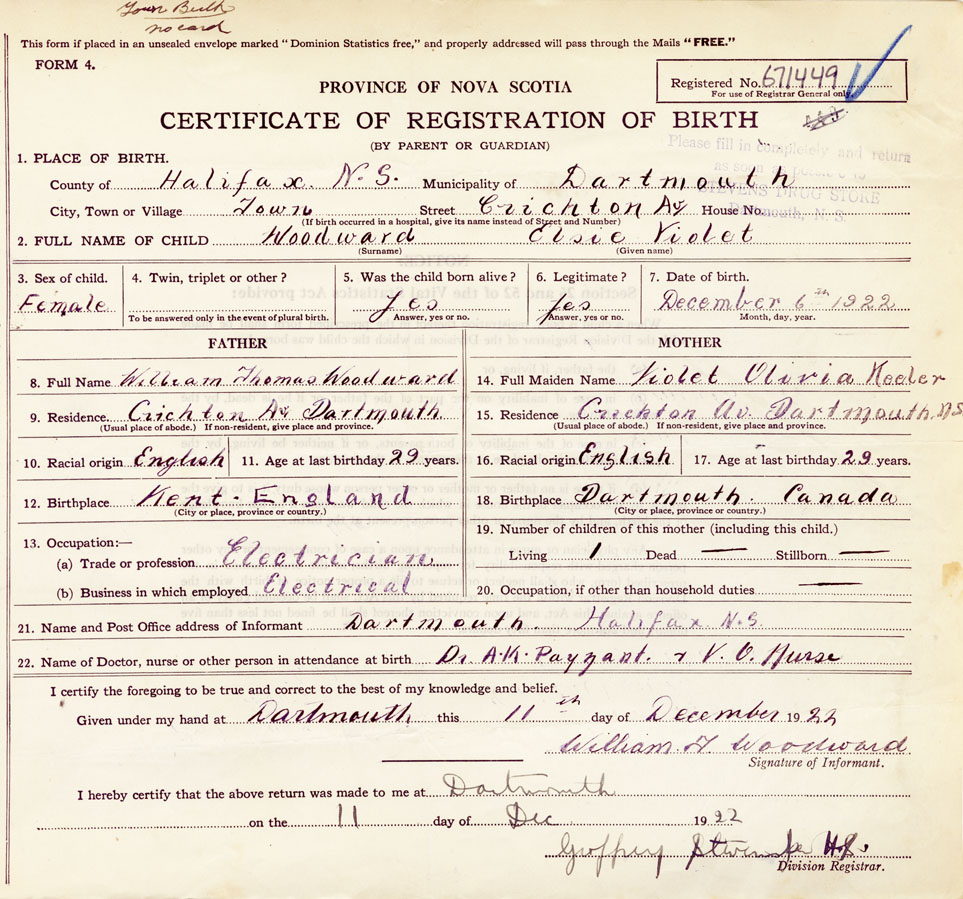 Town Birth
no card
This form if placed in an unsealed envelope marked "Dominion Statistics free," and properly addressed will pass through the Mails "FREE."
FORM 4.
Registered No. 671449
For use of Registrar General only.
PROVINCE OF NOVA SCOTIA
CERTIFICATE OF REGISTRATION OF BIRTH
(BY PARENT OR GUARDIAN)
Please fill in completely and return
as soon as possible to
STEVENS DRUG STORE
Dartmouth, N. S.
1. PLACE OF BIRTH.
County of Halifax. N.S. Municipality of Dartmouth
City, Town or Village Town Street Crichton Av House No.
(If birth occurred in a hospital, give its name instead of Street and Number)
2. FULL NAME OF CHILD Woodward Elsie Violet
(Surname) (Given name)
3. Sex of child. 4. Twin, triplet or other? 5. Was the child born alive? 6. Legitimate? 7. Date of birth.
Female Yes Yes December 6th 1922
To be answered only in the event of plural birth. Answer, yes or no. Answer, yes or no. Month, day, year.
FATHER MOTHER
8. Full Name William Thomas Woodward 14. Full Maiden Name Violet Olivia Keeler
9. Residence Crichton Av Dartmouth 15. Residence Crichton Av. Dartmouth N.S
(Usual place of abode.) If non-resident, give place and province. (Usual place of abode.) If non-resident, give place and province.
10. Racial origin English 11. Age at last birthday 29 years. 16. Racial origin English 17. Age at last birthday 29 years.
12. Birthplace Kent - England 18. Birthplace Dartmouth. Canada
(City or place, province or country.) (City or place, province or country.)
19. Number of children of this mother (including this child.)
13. Occupation:—
(a) Trade or profession Electrician Living 1 Dead — Stillborn —
(b) Business in which employed Electrical 20. Occupation, if other than household duties —
21. Name and Post Office address of Informant Dartmouth. Halifax N.S.
22. Name of Doctor, nurse or other person in attendance at birth Dr. A.K. Payzant. & V. O. Nurse
I certify the foregoing to be true and correct to the best of my knowledge and belief.
Given under my hand at Dartmouth this 11th day of December 1922
William T Woodward
Signature of Informant.
I hereby certify that the above return was made to me at Dartmouth
on the 11 day of Dec 1922
Geoffrey Stevens
Division Registrar.